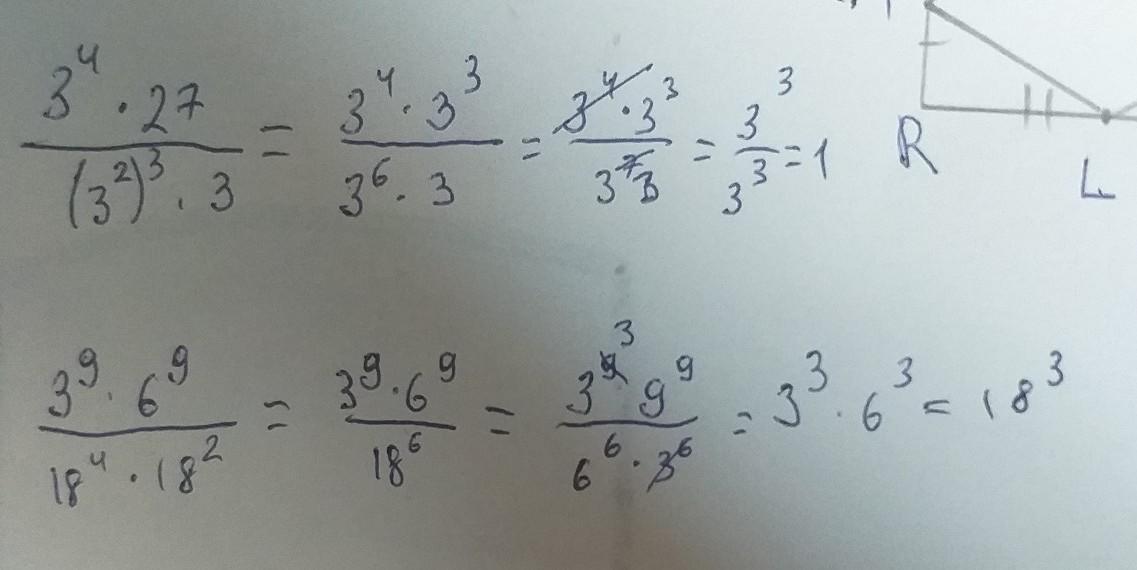 3⁴ · 27 / (3²)³ · 3 = 3⁴ · 3³ / 3⁶ · 3 = 3⁴ · 3³ / 3⁷ 3 = 3³ / 3³ = 1
R
L
3⁹ · 6⁹ / 18⁴ · 18² = 3⁹ · 6⁹ / 18⁶ = 3⁹ ³ 9⁹ / 6⁶ · 3⁶ = 3³ · 6³ = 18³